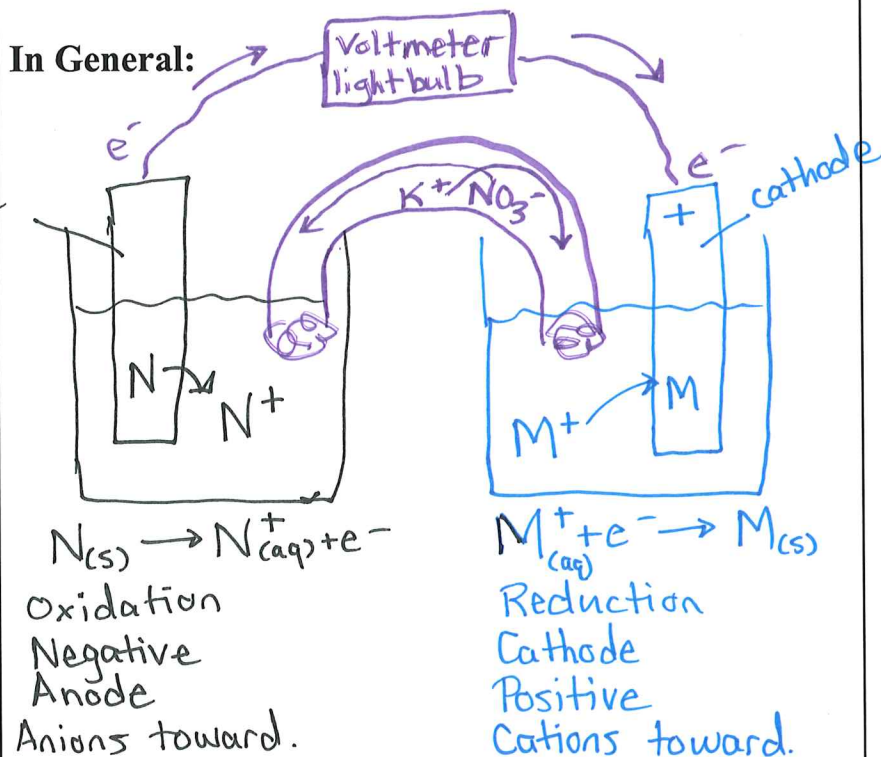 In General:
Voltmeter
lightbulb
e⁻
e⁻
cathode
K⁺ NO₃⁻
+
N
N⁺
M⁺
M
N(s) → N⁺(aq) + e⁻
M⁺(aq) + e⁻ → M(s)
Oxidation
Negative
Anode
Anions toward.
Reduction
Cathode
Positive
Cations toward.